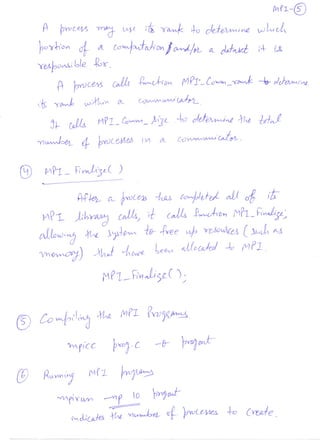 MPI-⑤
A process may use its rank to determine which
portion of a computation/and/or a dataset it is
responsible for.
A process calls function MPI_Comm_rank to determine
its rank within a communicator.
It calls MPI_Comm_size to determine the total
number of processes in a communicator.
④ MPI_Finalize( )
After a process has completed all of its
MPI library calls, it calls function MPI_Finalize,
allowing the system to free up resources (such as
memory) that have been allocated to MPI.
MPI_Finalize( );
⑤ Compiling the MPI Programs
mpicc prog.c -o progout
⑥ Running MPI programs
mpirun -np 10 progout
indicates the number of processes to create.